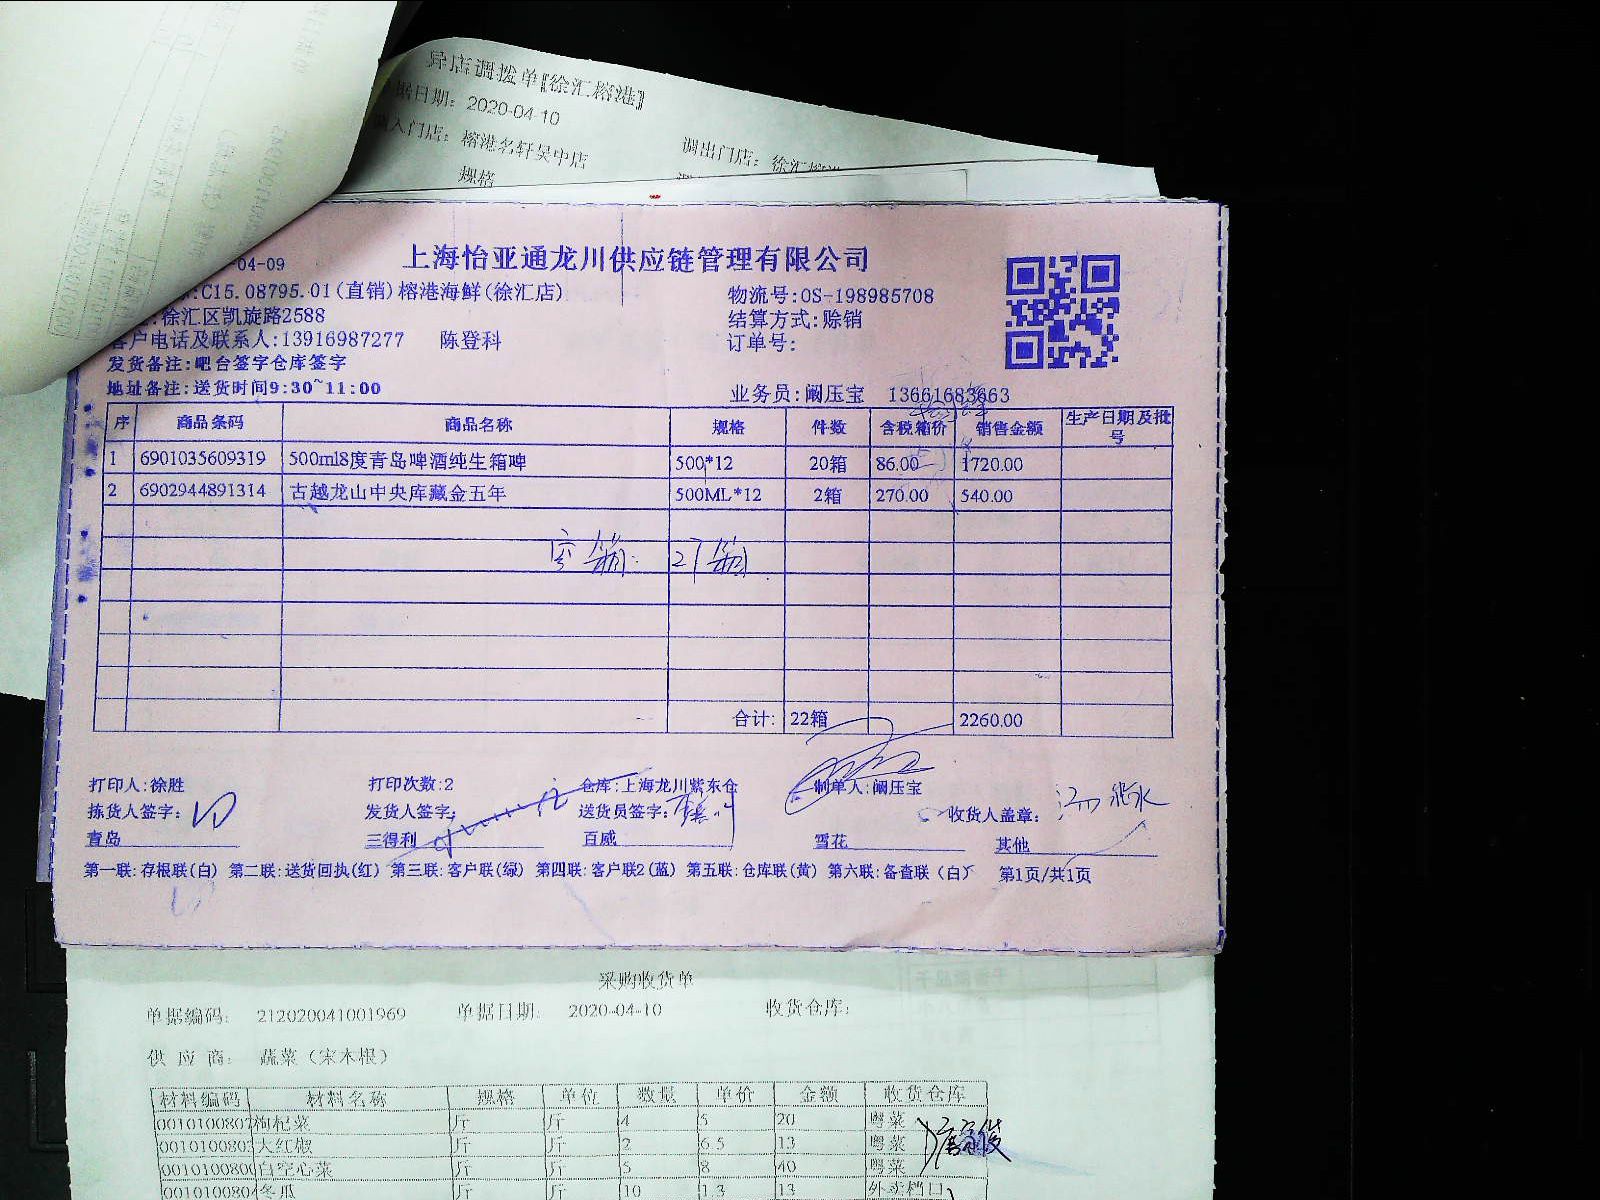 异店调拨单【徐汇榕港】
据日期: 2020-04-10
入门店: 榕港名轩吴中店 调出门店: 徐汇榕港
规格
-04-09 上海怡亚通龙川供应链管理有限公司
:C15.08795.01(直销)榕港海鲜(徐汇店) 物流号:OS-198985708
:徐汇区凯旋路2588 结算方式:赊销
客户电话及联系人:13916987277 陈登科 订单号:
发货备注:吧台签字仓库签字
地址备注:送货时间9:30~11:00 业务员:阚压宝 13661683663
序 商品条码 商品名称 规格 件数 含税箱价 销售金额 生产日期及批号
1 6901035609319 500ml8度青岛啤酒纯生箱啤 500*12 20箱 86.00 1720.00
2 6902944891314 古越龙山中央库藏金五年 500ML*12 2箱 270.00 540.00
空箱: 27箱
合计: 22箱 2260.00
打印人:徐胜 打印次数:2 仓库:上海龙川紫东仓 制单人:阚压宝
拣货人签字: 发货人签字: 送货员签字: 收货人盖章:
青岛 三得利 百威 雪花 其他
第一联:存根联(白) 第二联:送货回执(红) 第三联:客户联(绿) 第四联:客户联2(蓝) 第五联:仓库联(黄) 第六联:备查联(白) 第1页/共1页
采购收货单
单据编码: 212020041001969 单据日期: 2020-04-10 收货仓库:
供应商: 蔬菜(宋木根)
材料编码 材料名称 规格 单位 数量 单价 金额 收货仓库
001010080 枸杞菜 斤 斤 4 5 20 粤菜
001010080 大红椒 斤 斤 2 6.5 13 粤菜
001010080 白空心菜 斤 斤 5 8 40 粤菜
001010080 冬瓜 斤 斤 10 1.3 13 外卖档口